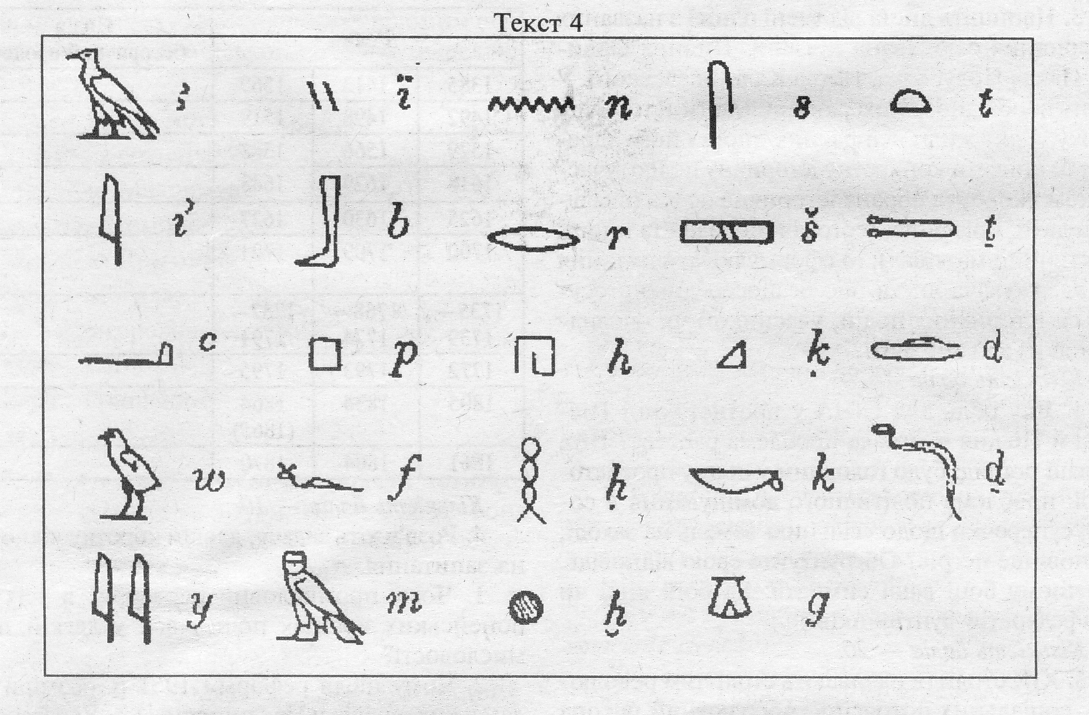 Текст 4
ꜣ ï n s t
ỉ b r š ṯ
ꜥ p h ḳ d
w f ḥ k ḏ
y m ḫ g